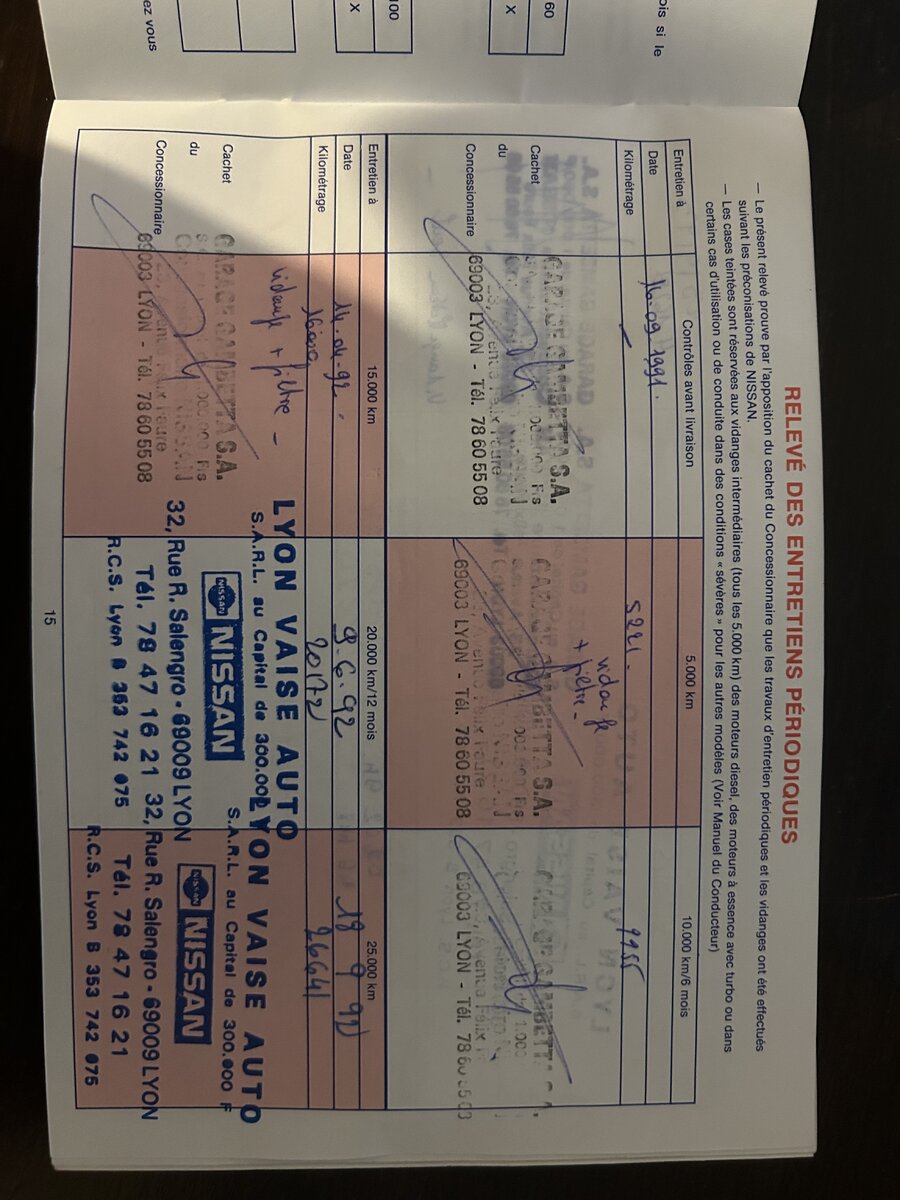 RELEVÉ DES ENTRETIENS PÉRIODIQUES
— Le présent relevé prouve par l'apposition du cachet du Concessionnaire que les travaux d'entretien périodiques et les vidanges ont été effectués
suivant les préconisations de NISSAN.
— Les cases teintées sont réservées aux vidanges intermédiaires (tous les 5.000 km) des moteurs diesel, des moteurs à essence avec turbo ou dans
certains cas d'utilisation ou de conduite dans des conditions « sévères » pour les autres modèles (Voir Manuel du Conducteur)
Entretien à
Contrôles avant livraison
5.000 km
10.000 km/6 mois
Date
16.09.1991.
Kilométrage
5221.
9955
vidange
+ filtre -
Cachet
du
Concessionnaire
GARAGE GAMBETTA S.A.
69003 LYON - Tél. 78 60 55 08
GAMBETTA S.A.
69003 LYON - Tél. 78 60 55 08
69003 LYON - Tél. 78
Entretien à
15.000 km
20.000 km/12 mois
25.000 km
Date
14.04.92.
9.6.92
18 9 92
Kilométrage
20172
26641
vidange + filtre -
Cachet
du
Concessionnaire
GARAGE GAMBETTA S.A.
69003 LYON - Tél. 78 60 55 08
LYON VAISE AUTO
S.A.R.L. au Capital de 300.000
NISSAN
NISSAN
32, Rue R. Salengro - 69009 LYON
Tél. 78 47 16 21
R.C.S. Lyon B 353 742 075
LYON VAISE AUTO
S.A.R.L. au Capital de 300.000 F
NISSAN
NISSAN
32, Rue R. Salengro - 69009 LYON
Tél. 78 47 16 21
R.C.S. Lyon B 353 742 075
15
ois si le
60
X
100
X
ez vous